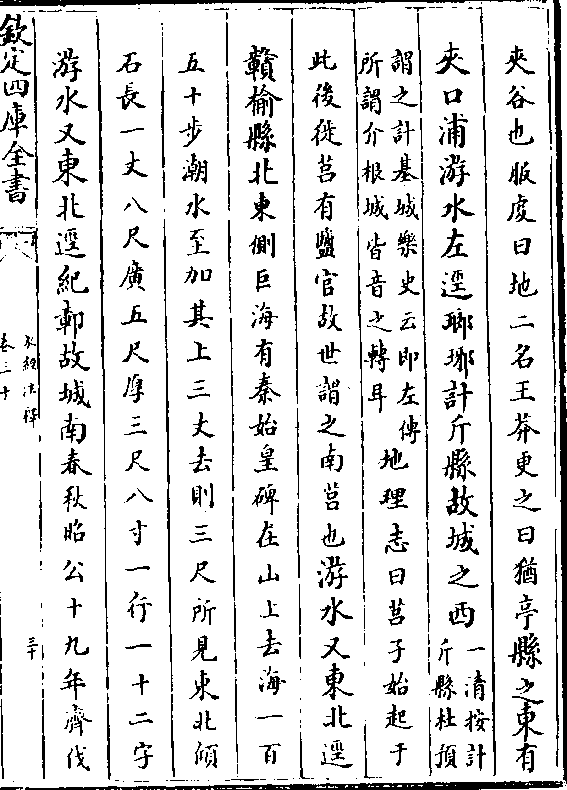 夾谷也服虔曰地二名王莽更之曰猶亭縣之東有
夾口浦游水左逕琅琊計斤縣故城之西一清按計
斤縣杜預
謂之計基城樂史云即左傳
所謂介根城皆音之轉耳地理志曰莒子始起于
此後徙莒有鹽官故世謂之南莒也游水又東北逕
贛榆縣北東側巨海有秦始皇碑在山上去海一百
五十步潮水至加其上三丈去則三尺所見東北傾
石長一丈八尺廣五尺厚三尺八寸一行一十二字
游水又東北逕紀鄣故城南春秋昭公十九年齊伐
欽定四庫全書
水經注釋
卷三十
三十